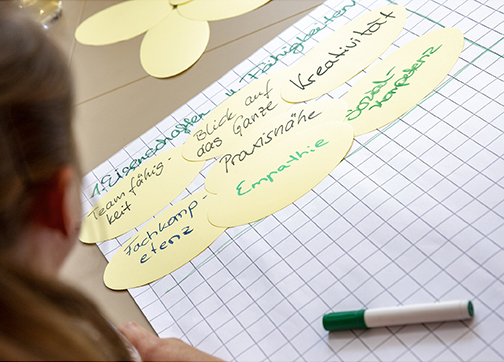 1. Eigenschaften u. Fähigkeiten
Team fähig-
keit
Blick auf
das Ganze
Kreativität
Fachkomp-
etenz
Praxisnähe
Empathie
Sozial-
kompetenz